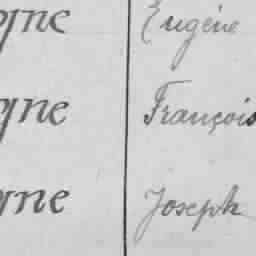 gne Eugène
gne François
gne Joseph